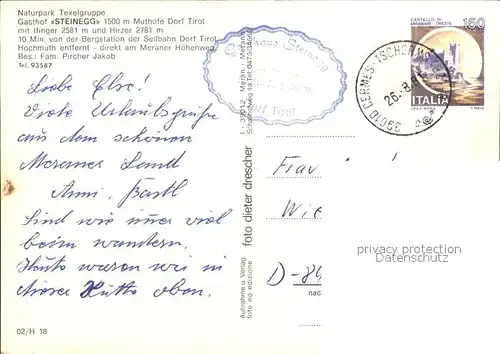 Naturpark Texelgruppe
Gasthof «STEINEGG» 1500 m Muthöfe Dorf Tirol
mit Ifinger 2581 m und Hirzer 2781 m
10. Min. von der Bergstation der Seilbahn Dorf Tirol
Hochmuth entfernt - direkt am Meraner Höhenweg.
Bes.: Fam. Pircher Jakob
Tel. 93587
Liebe Else!
Viele Urlaubsgrüße
aus dem schönen
Meraner Land
Anni, Bastl
Sind wie immer viel
beim wandern.
Heute waren wir in
dieser Hütte oben.
02/H 18
Gasthaus Steinegg
Dorf Tirol
Aufnahme u. Verlag
foto ed edizione
foto dieter drescher
I - 39012 Meran
39010 CERMES-TSCHERMS
26-8
CASTELLO DI
MIRAMARE - TRIESTE
150
ITALIA
Frau
Wie
D-84
nac
privacy protection
Datenschutz